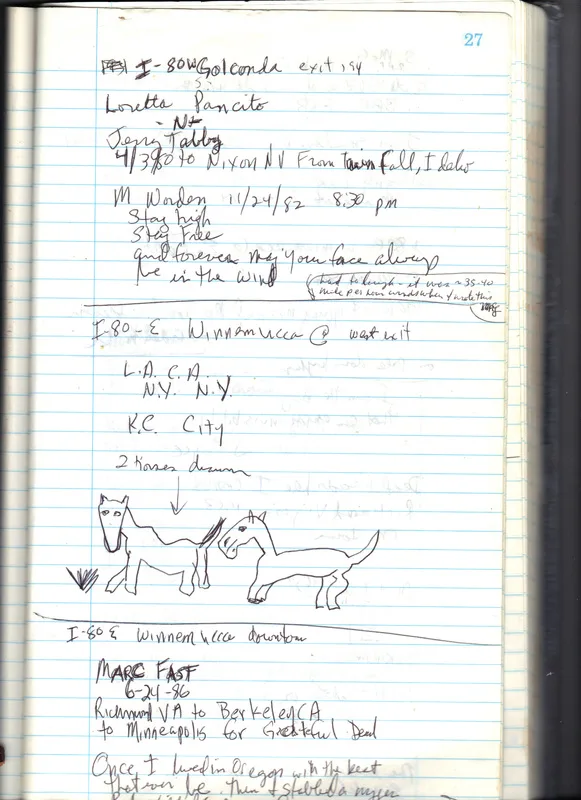 27
I-80W Golconda exit 194
Loretta Pancito
- N+
Jerry Tabby
4/3/80 to Nixon NV From Twin Fall, Idaho
M Worden 11/24/82 8:30 pm
Stay high
Stay Free
and forever may your face always
be in the wind
had to laugh - it was ~ 35-40
mile per hour winds when I wrote this
I-80-E Winnemucca @ west exit
L.A. C.A.
N.Y. N.Y.
K.C. City
2 Horses drawn
I-80 E Winnemucca downtown
MARC FAST
6-24-86
Richmond VA to Berkeley CA
to Minneapolis for Grateful Dead
Once I lived in Oregon with the best
that ever be then I stabbed a